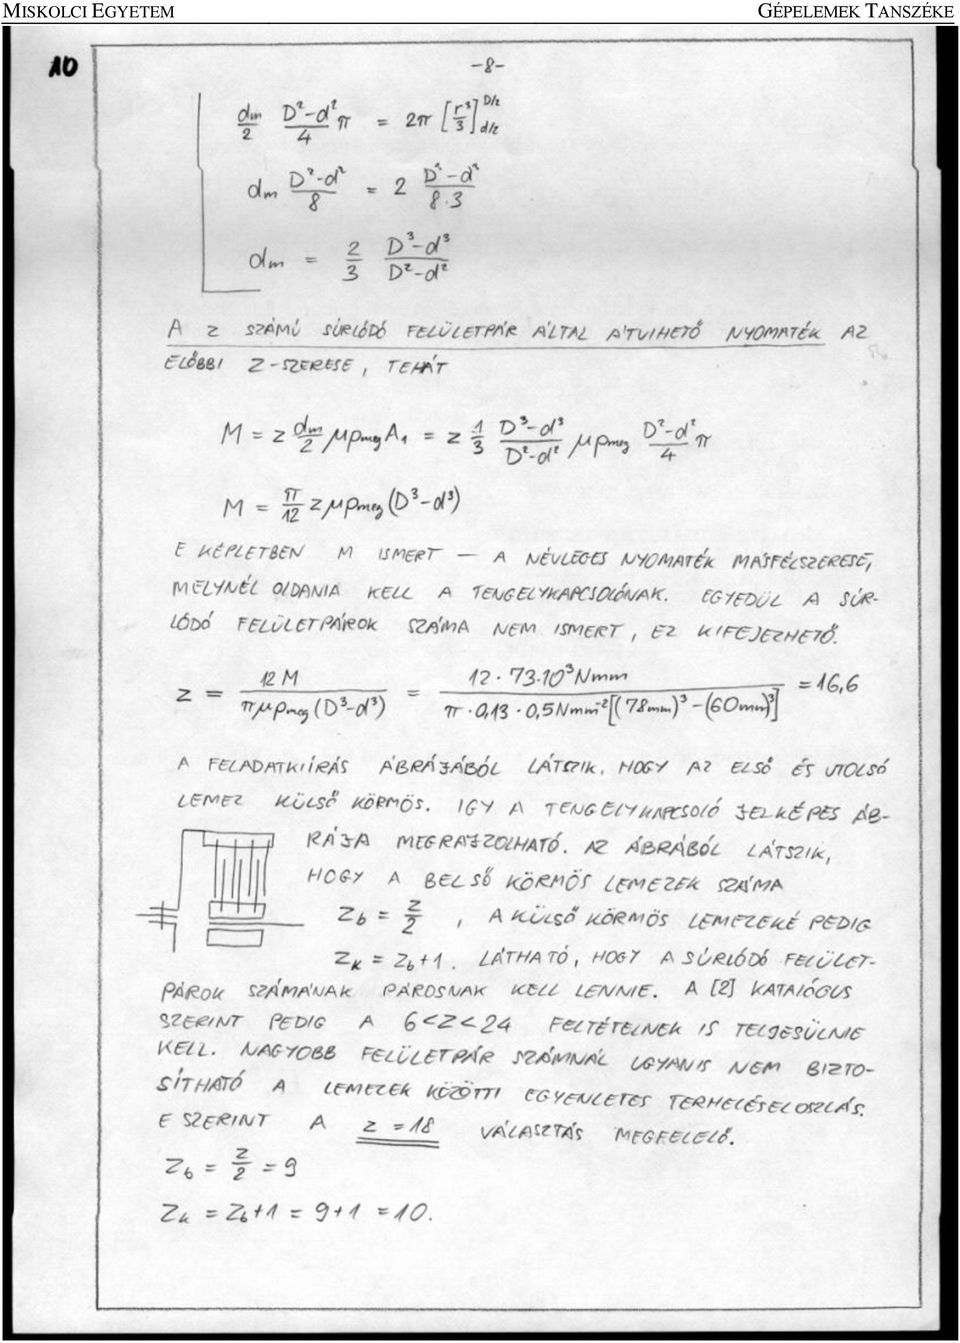 MISKOLCI EGYETEM GÉPELEMEK TANSZÉKE
10
-8-
dm/2 (D²-d²)/4 π = 2π [r³/3] D/2 d/2
dm (D²-d²)/8 = 2 (D³-d³)/(8·3)
dm = 2/3 (D³-d³)/(D²-d²)
A z SZÁMÚ SÚRLÓDÓ FELÜLETPÁR ÁLTAL ÁTVIHETŐ NYOMATÉK AZ
ELŐBBI Z-SZERESE, TEHÁT
M = z dm/2 μ pmeg A₁ = z 1/3 (D³-d³)/(D²-d²) μ pmeg (D²-d²)/4 π
M = π/12 z μ pmeg (D³-d³)
E KÉPLETBEN M ISMERT — A NÉVLEGES NYOMATÉK MÁSFÉLSZERESE,
MELYNÉL OLDANIA KELL A TENGELYKAPCSOLÓNAK. EGYEDÜL A SÚR-
LÓDÓ FELÜLETPÁROK SZÁMA NEM ISMERT, EZ KIFEJEZHETŐ.
z = 12 M / (π μ pmeg (D³-d³)) = 12 · 73·10³ Nmm / (π · 0,13 · 0,5 Nmm⁻² [(78mm)³ - (60mm)³]) = 16,6
A FELADATKIÍRÁS ÁBRÁJÁBÓL LÁTSZIK, HOGY AZ ELSŐ ÉS UTOLSÓ
LEMEZ KÜLSŐ KÖRMÖS. IGY A TENGELYKAPCSOLÓ JELKÉPES ÁB-
RÁJA MEGRAJZOLHATÓ. AZ ÁBRÁBÓL LÁTSZIK,
HOGY A BELSŐ KÖRMÖS LEMEZEK SZÁMA
Zb = z/2 , A KÜLSŐ KÖRMÖS LEMEZEKÉ PEDIG
ZK = Zb+1. LÁTHATÓ, HOGY A SÚRLÓDÓ FELÜLET-
PÁROK SZÁMÁNAK PÁROSNAK KELL LENNIE. A [2] KATALÓGUS
SZERINT PEDIG A 6<Z<24 FELTÉTELNEK IS TELJESÜLNIE
KELL. NAGYOBB FELÜLETPÁR SZÁMNÁL UGYANIS NEM BIZTO-
SÍTHATÓ A LEMEZEK KÖZÖTTI EGYENLETES TERHELÉSELOSZLÁS.
E SZERINT A z = 18 VÁLASZTÁS MEGFELELŐ.
Zb = z/2 = 9
Zk = Zb+1 = 9+1 = 10.